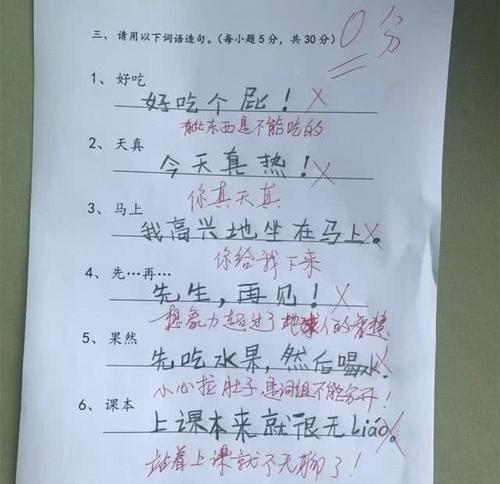 三、请用以下词语造句。(每小题5分，共30分) 0分
1、好吃
好吃个屁！
有些东西是不能吃的
2、天真
今天真热！
你真天真
3、马上
我高兴地坐在马上。
你给我下来
4、先……再……
先生，再见！
想象力超过了地球人的智慧
5、果然
先吃水果，然后喝水。
小心拉肚子 是词组不能分开！
6、课本
上课本来就很无liáo。
站着上课就不无聊了！